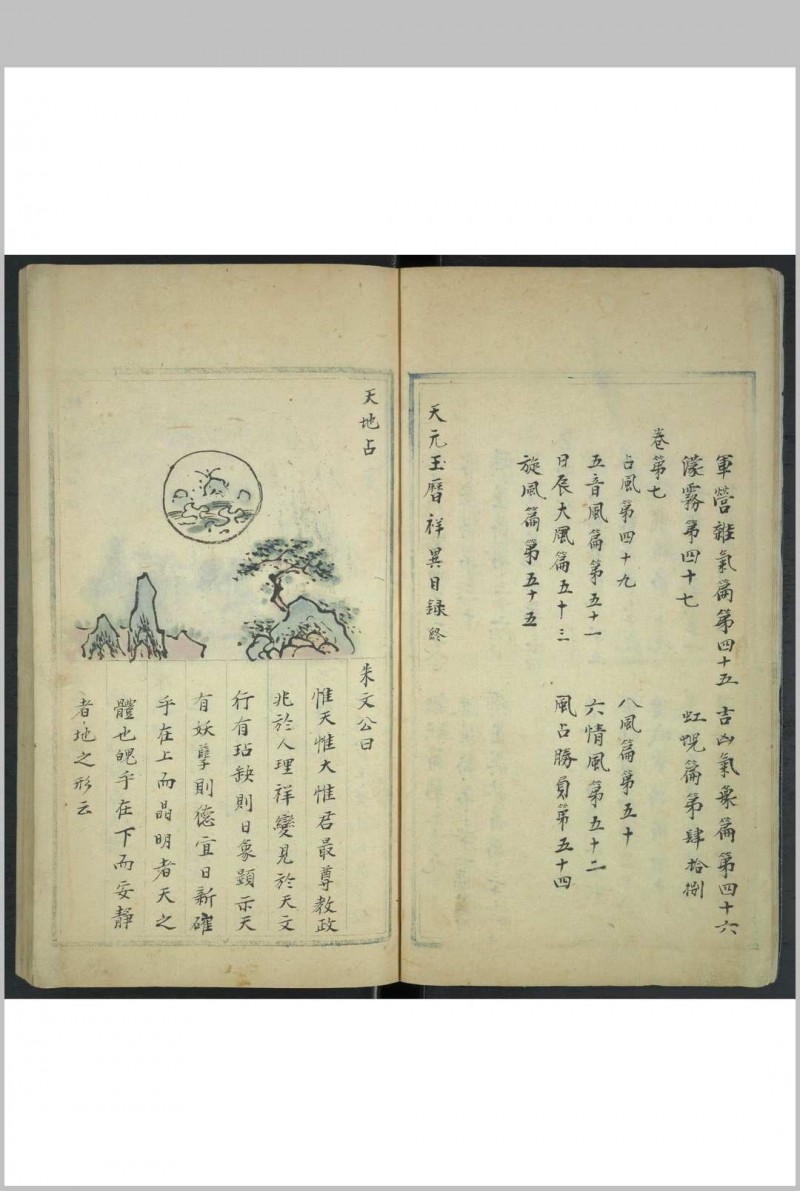 軍營雜氣篇第四十五 吉凶氣象篇第四十六
濛霧第四十七 虹蜺篇第肆拾捌
卷第七
占風第四十九 八風篇第五十
五音風篇第五十一 六情風第五十二
日辰大風篇五十三 風占勝負第五十四
旋風篇第五十五
天元玉曆祥異目録終
天地占
朱文公曰
惟天惟大惟君最尊教政
兆於人理祥變見於天文
行有玷缺則日象顕示天
有妖孽則德宜日新確
乎在上而晶明者天之
體也魄乎在下而安静
者地之形云